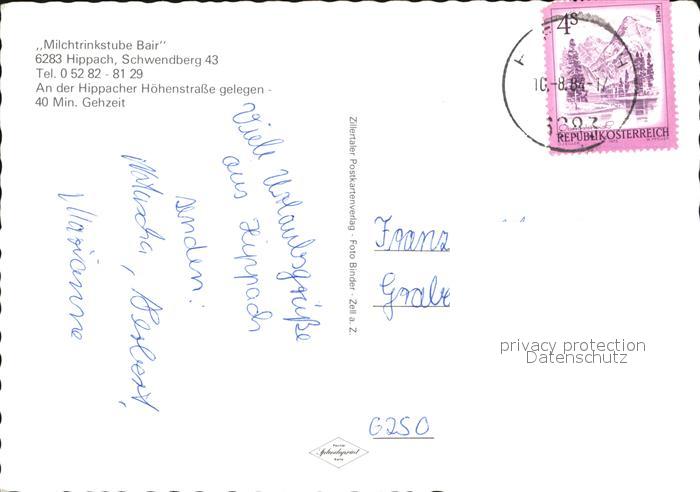 „Milchtrinkstube Bair"
6283 Hippach, Schwendberg 43
Tel. 0 52 82 - 81 29
An der Hippacher Höhenstraße gelegen -
40 Min. Gehzeit
Viele Urlaubsgrüße
aus Hippach
senden:
Herbert,
Marianne
Zillertaler Postkartenverlag - Foto Binder - Zell a. Z.
4s
ALMSEE
REPUBLIK ÖSTERREICH
10.-8.84-17
6283
Franz
Grabe
6250
privacy protection
Datenschutz